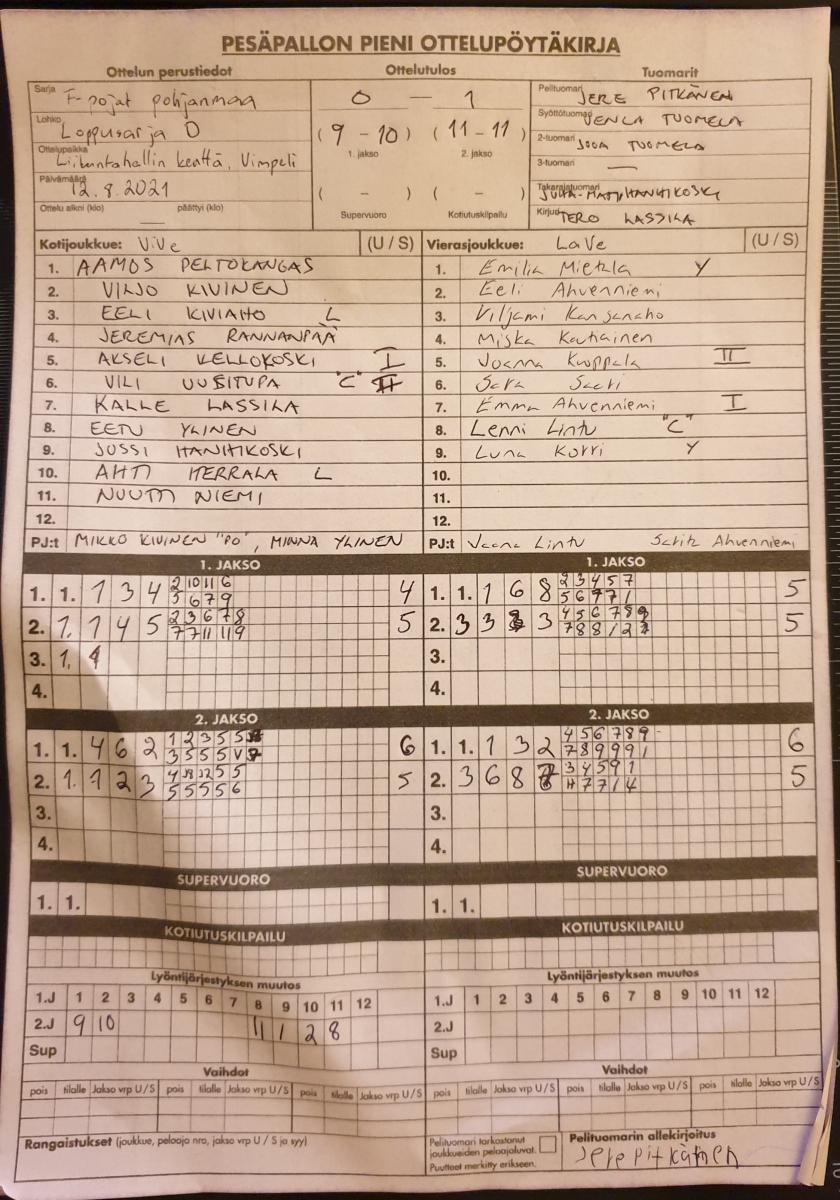 PESÄPALLON PIENI OTTELUPÖYTÄKIRJA
Ottelun perustiedot Ottelutulos Tuomarit
Sarja F-pojat pohjanmaa
Lohko Loppusarja D
Ottelupaikka Liikuntahallin kenttä, Vimpeli
Päivämäärä 12.8.2021
Ottelu alkoi (klo) — päättyi (klo)
0 — 1
(9 - 10) (11 - 11)
1. jakso 2. jakso
( - ) ( - )
Supervuoro Kotiutuskilpailu
Pelituomari JERE PITKÄNEN
Syöttötuomari VENLA TUOMELA
2-tuomari JOOA TUOMELA
3-tuomari —
Takarajatuomari JUHA-MATTI HANHIKOSKI
Kirjuri TERO LASSILA
Kotijoukkue: ViVe (U / S)
1. AAMOS PELTOKANGAS
2. VILJO KIVINEN
3. EELI KIVIAHO L
4. JEREMIAS RANNANPÄÄ
5. AKSELI KELLOKOSKI I
6. VILI UUSITUPA "C" II
7. KALLE LASSILA
8. EETU YLINEN
9. JUSSI HANHIKOSKI
10. AHTI HERRALA L
11. NUUTTI NIEMI
12.
PJ:t MIKKO KIVINEN "PO", MINNA YLINEN
Vierasjoukkue: LaVe (U / S)
1. Emilia Mietala Y
2. Eeli Ahvenniemi
3. Viljami Kangasaho
4. Miska Kauhainen
5. Joanna Kuoppala II
6. Sara Saari
7. Emma Ahvenniemi I
8. Lenni Lintu "C"
9. Luna Korri Y
10.
11.
12.
PJ:t Jaana Lintu Sarita Ahvenniemi
1. JAKSO
1. 1. 1 3 4 2 10 11 6 4
5 6 7 9
2. 1. 1 4 5 2 3 6 7 8 5
7 7 11 11 9
3. 1. 4
4.
1. JAKSO
1. 1. 1 6 8 2 3 4 5 7 5
5 6 7 7 1
2. 3 3 3 4 5 6 7 8 9 5
7 8 8 1 2
3.
4.
2. JAKSO
1. 1. 4 6 2 1 2 3 5 5 6
3 5 5 5 V
2. 1. 1 2 3 5 5 5
5 5 5 5 6
3.
4.
2. JAKSO
1. 1. 1 3 2 4 5 6 7 8 9 6
7 8 9 9 9 1
2. 3 6 8 7 3 4 5 9 1 5
7 7 1 4
3.
4.
SUPERVUORO
1. 1.
SUPERVUORO
1. 1.
KOTIUTUSKILPAILU
KOTIUTUSKILPAILU
Lyöntijärjestyksen muutos
1.J 1 2 3 4 5 6 7 8 9 10 11 12
2.J 9 10 11 1 2 8
Sup
Lyöntijärjestyksen muutos
1.J 1 2 3 4 5 6 7 8 9 10 11 12
2.J
Sup
Vaihdot
pois tilalle Jakso vrp U / S pois tilalle Jakso vrp U / S pois tilalle Jakso vrp U / S
Vaihdot
pois tilalle Jakso vrp U / S pois tilalle Jakso vrp U / S pois tilalle Jakso vrp U / S
Rangaistukset (joukkue, pelaaja nro, jakso vrp U / S ja syy)
Pelituomari tarkastanut
joukkueiden pelaajaluvat.
Puutteet merkitty erikseen.
Pelituomarin allekirjoitus
Jere Pitkänen